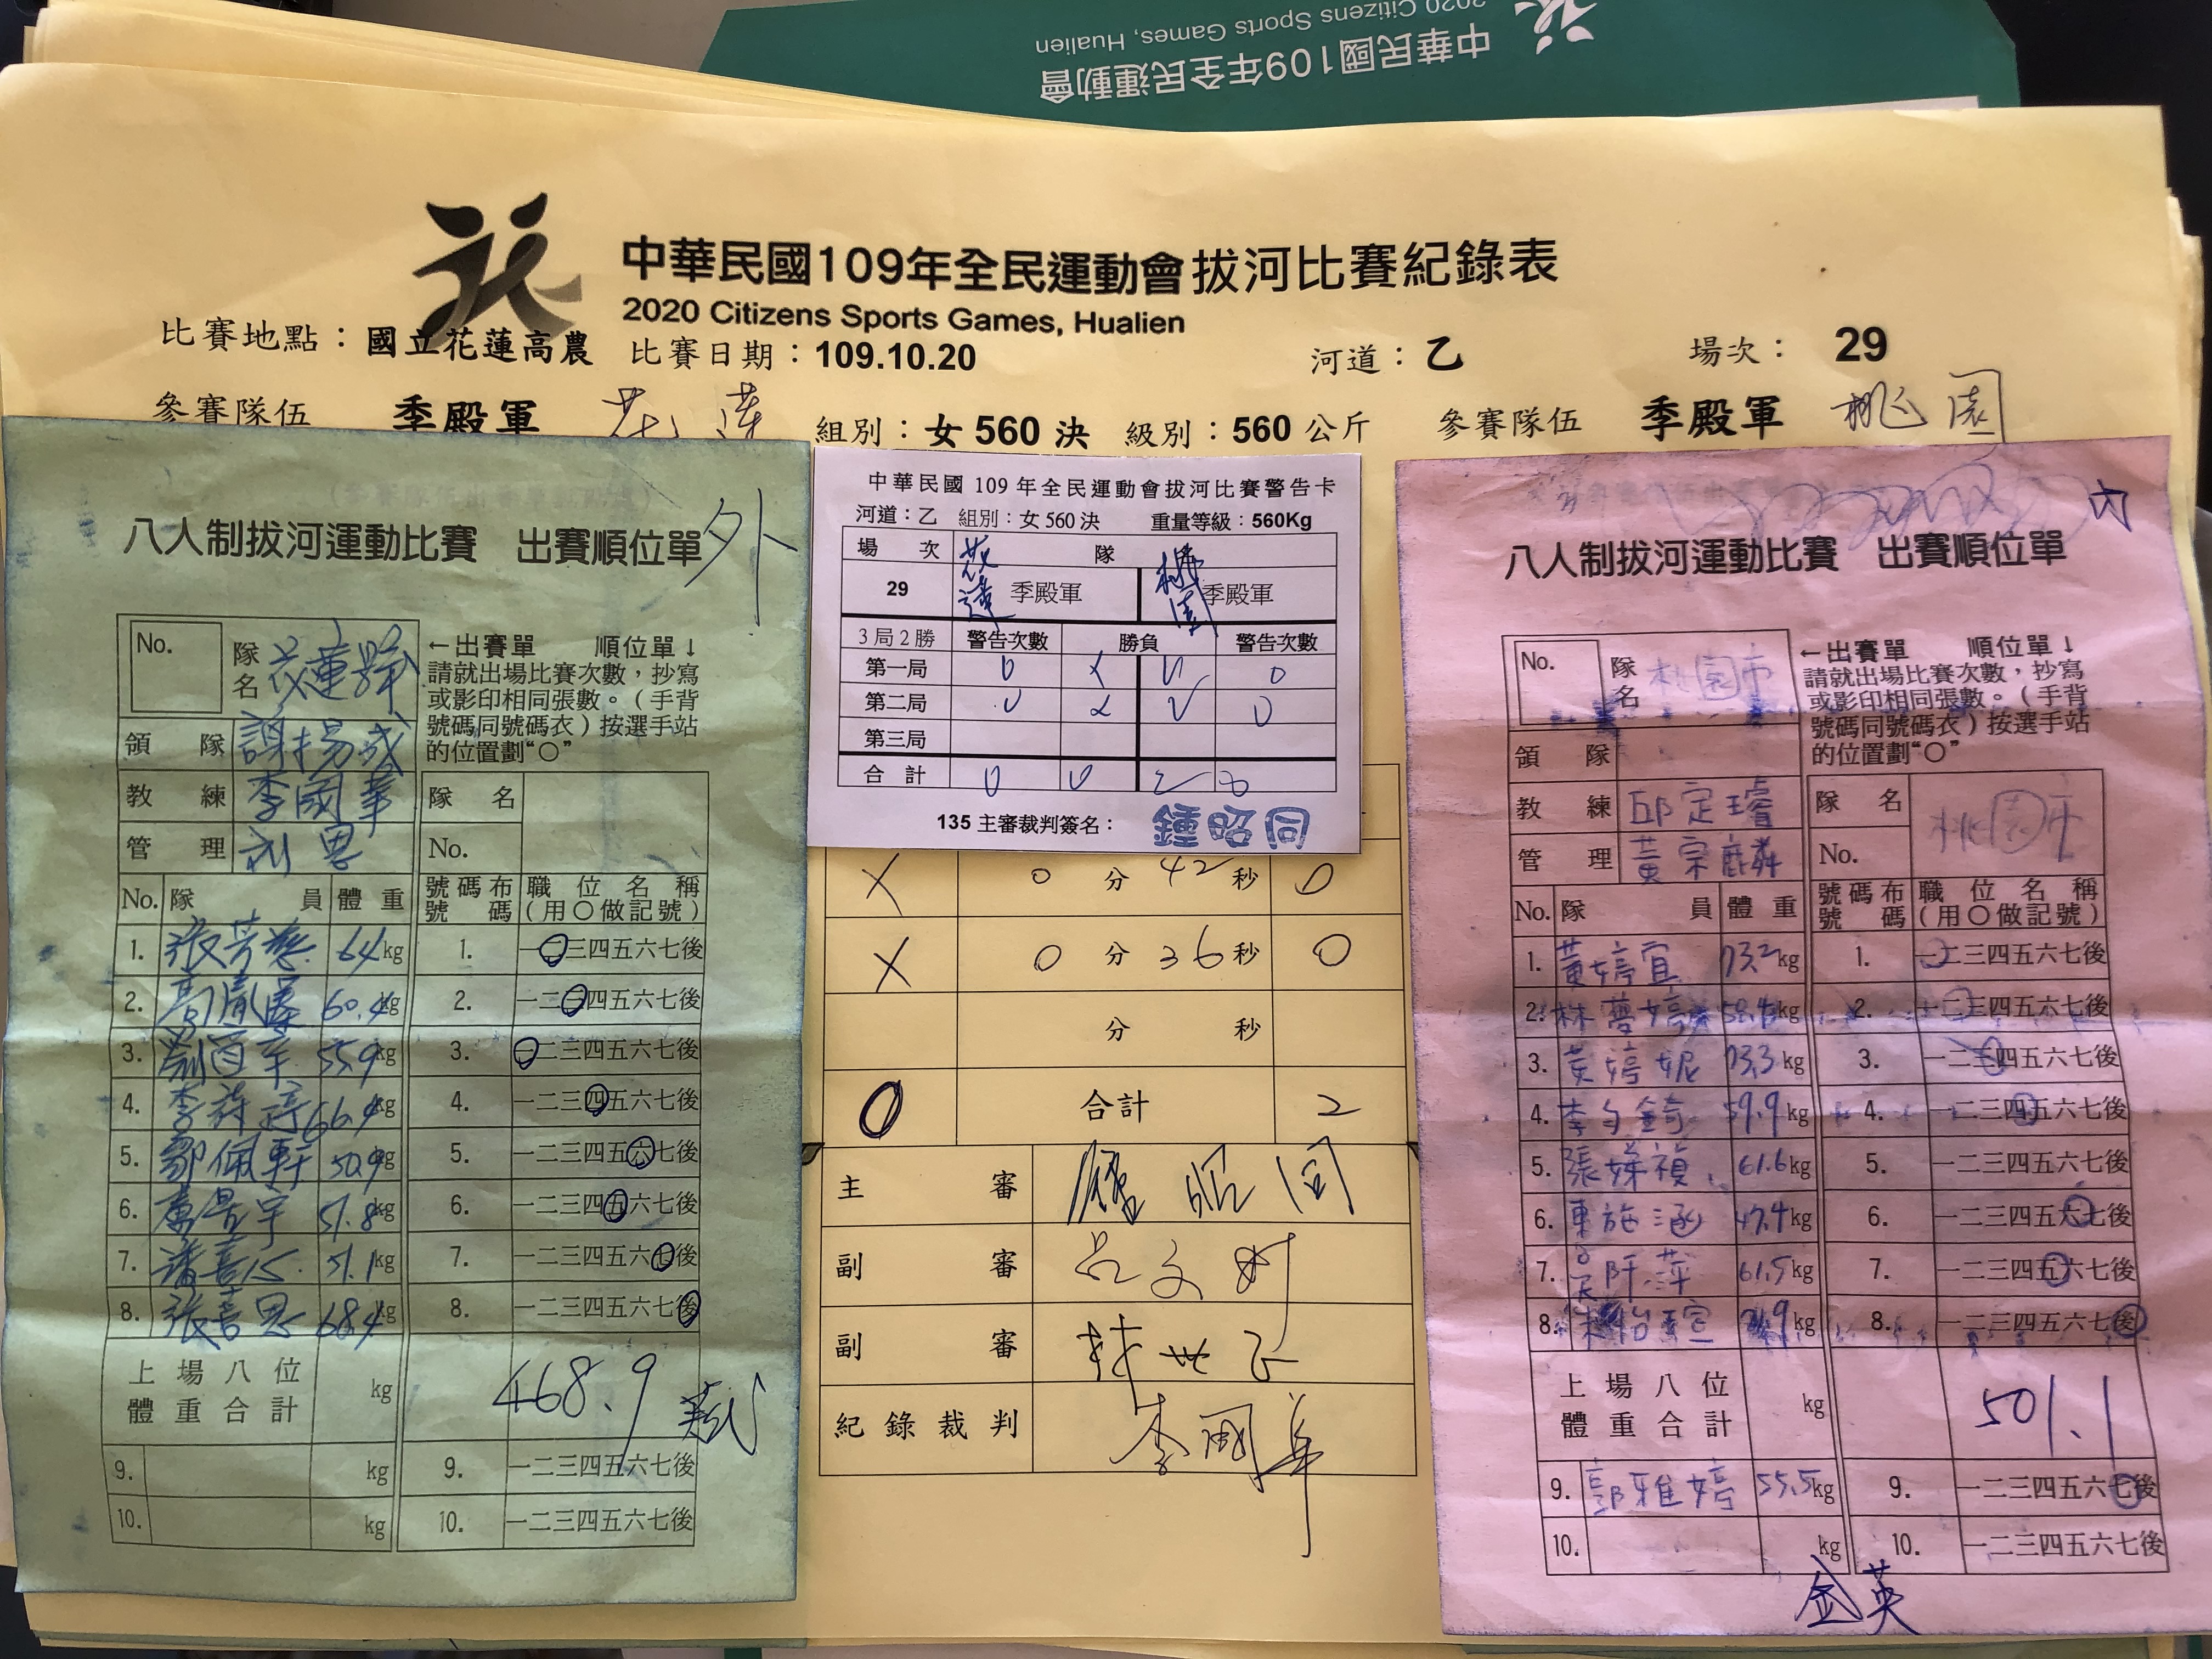 2020 Citizens Sports Games, Hualien
中華民國109年全民運動會
中華民國109年全民運動會拔河比賽紀錄表
2020 Citizens Sports Games, Hualien
比賽地點：國立花蓮高農 比賽日期：109.10.20 河道：乙 場次： 29
參賽隊伍 季殿軍 花蓮 組別：女560決 級別：560公斤 參賽隊伍 季殿軍 桃園
外
八人制拔河運動比賽 出賽順位單
No. 隊名 花蓮縣
←出賽單 順位單↓
請就出場比賽次數，抄寫
或影印相同張數。（手背
號碼同號碼衣）按選手站
的位置劃“〇”
領隊 謝揚成
教練 李國華
管理
隊名
No.
No. 隊員 體重 號碼布號碼 職位名稱（用〇做記號）
1. 64kg 1. 一二三四五六七後
2. 60.4kg 2. 一二三四五六七後
3. 55.9kg 3. 一二三四五六七後
4. 66.4kg 4. 一二三四五六七後
5. 鄒佩軒 50.9kg 5. 一二三四五六七後
6. 51.8kg 6. 一二三四五六七後
7. 51.1kg 7. 一二三四五六七後
8. 張喜恩 68.4kg 8. 一二三四五六七後
上場八位體重合計 kg 468.9
9. kg 9. 一二三四五六七後
10. kg 10. 一二三四五六七後
中華民國 109 年全民運動會拔河比賽警告卡
河道：乙 組別：女560決 重量等級：560Kg
場次 隊
29 花蓮 季殿軍 桃園 季殿軍
3局2勝 警告次數 勝負 警告次數
第一局 0 X V 0
第二局 0 X V 0
第三局
合計 0 0 2 0
135 主審裁判簽名： 鍾昭同
X 0 分 42 秒 0
X 0 分 36 秒 0
分 秒
0 合計 2
主審 鍾昭同
副審
副審
紀錄裁判
內
八人制拔河運動比賽 出賽順位單
No. 隊名 桃園市
←出賽單 順位單↓
請就出場比賽次數，抄寫
或影印相同張數。（手背
號碼同號碼衣）按選手站
的位置劃“〇”
領隊
教練 邱定璿
管理 黃宗麟
隊名 桃園市
No.
No. 隊員 體重 號碼布號碼 職位名稱（用〇做記號）
1. 黃婷宜 73.2kg 1. 一二三四五六七後
2. 林夢婷 58.4kg 2. 一二三四五六七後
3. 黃婷妮 73.3kg 3. 一二三四五六七後
4. 59.9kg 4. 一二三四五六七後
5. 61.6kg 5. 一二三四五六七後
6. 47.4kg 6. 一二三四五六七後
7. 61.5kg 7. 一二三四五六七後
8. 林怡瑄 kg 8. 一二三四五六七後
上場八位體重合計 kg 501.1
9. 郭雅婷 55.5kg 9. 一二三四五六七後
10. kg 10. 一二三四五六七後
金英